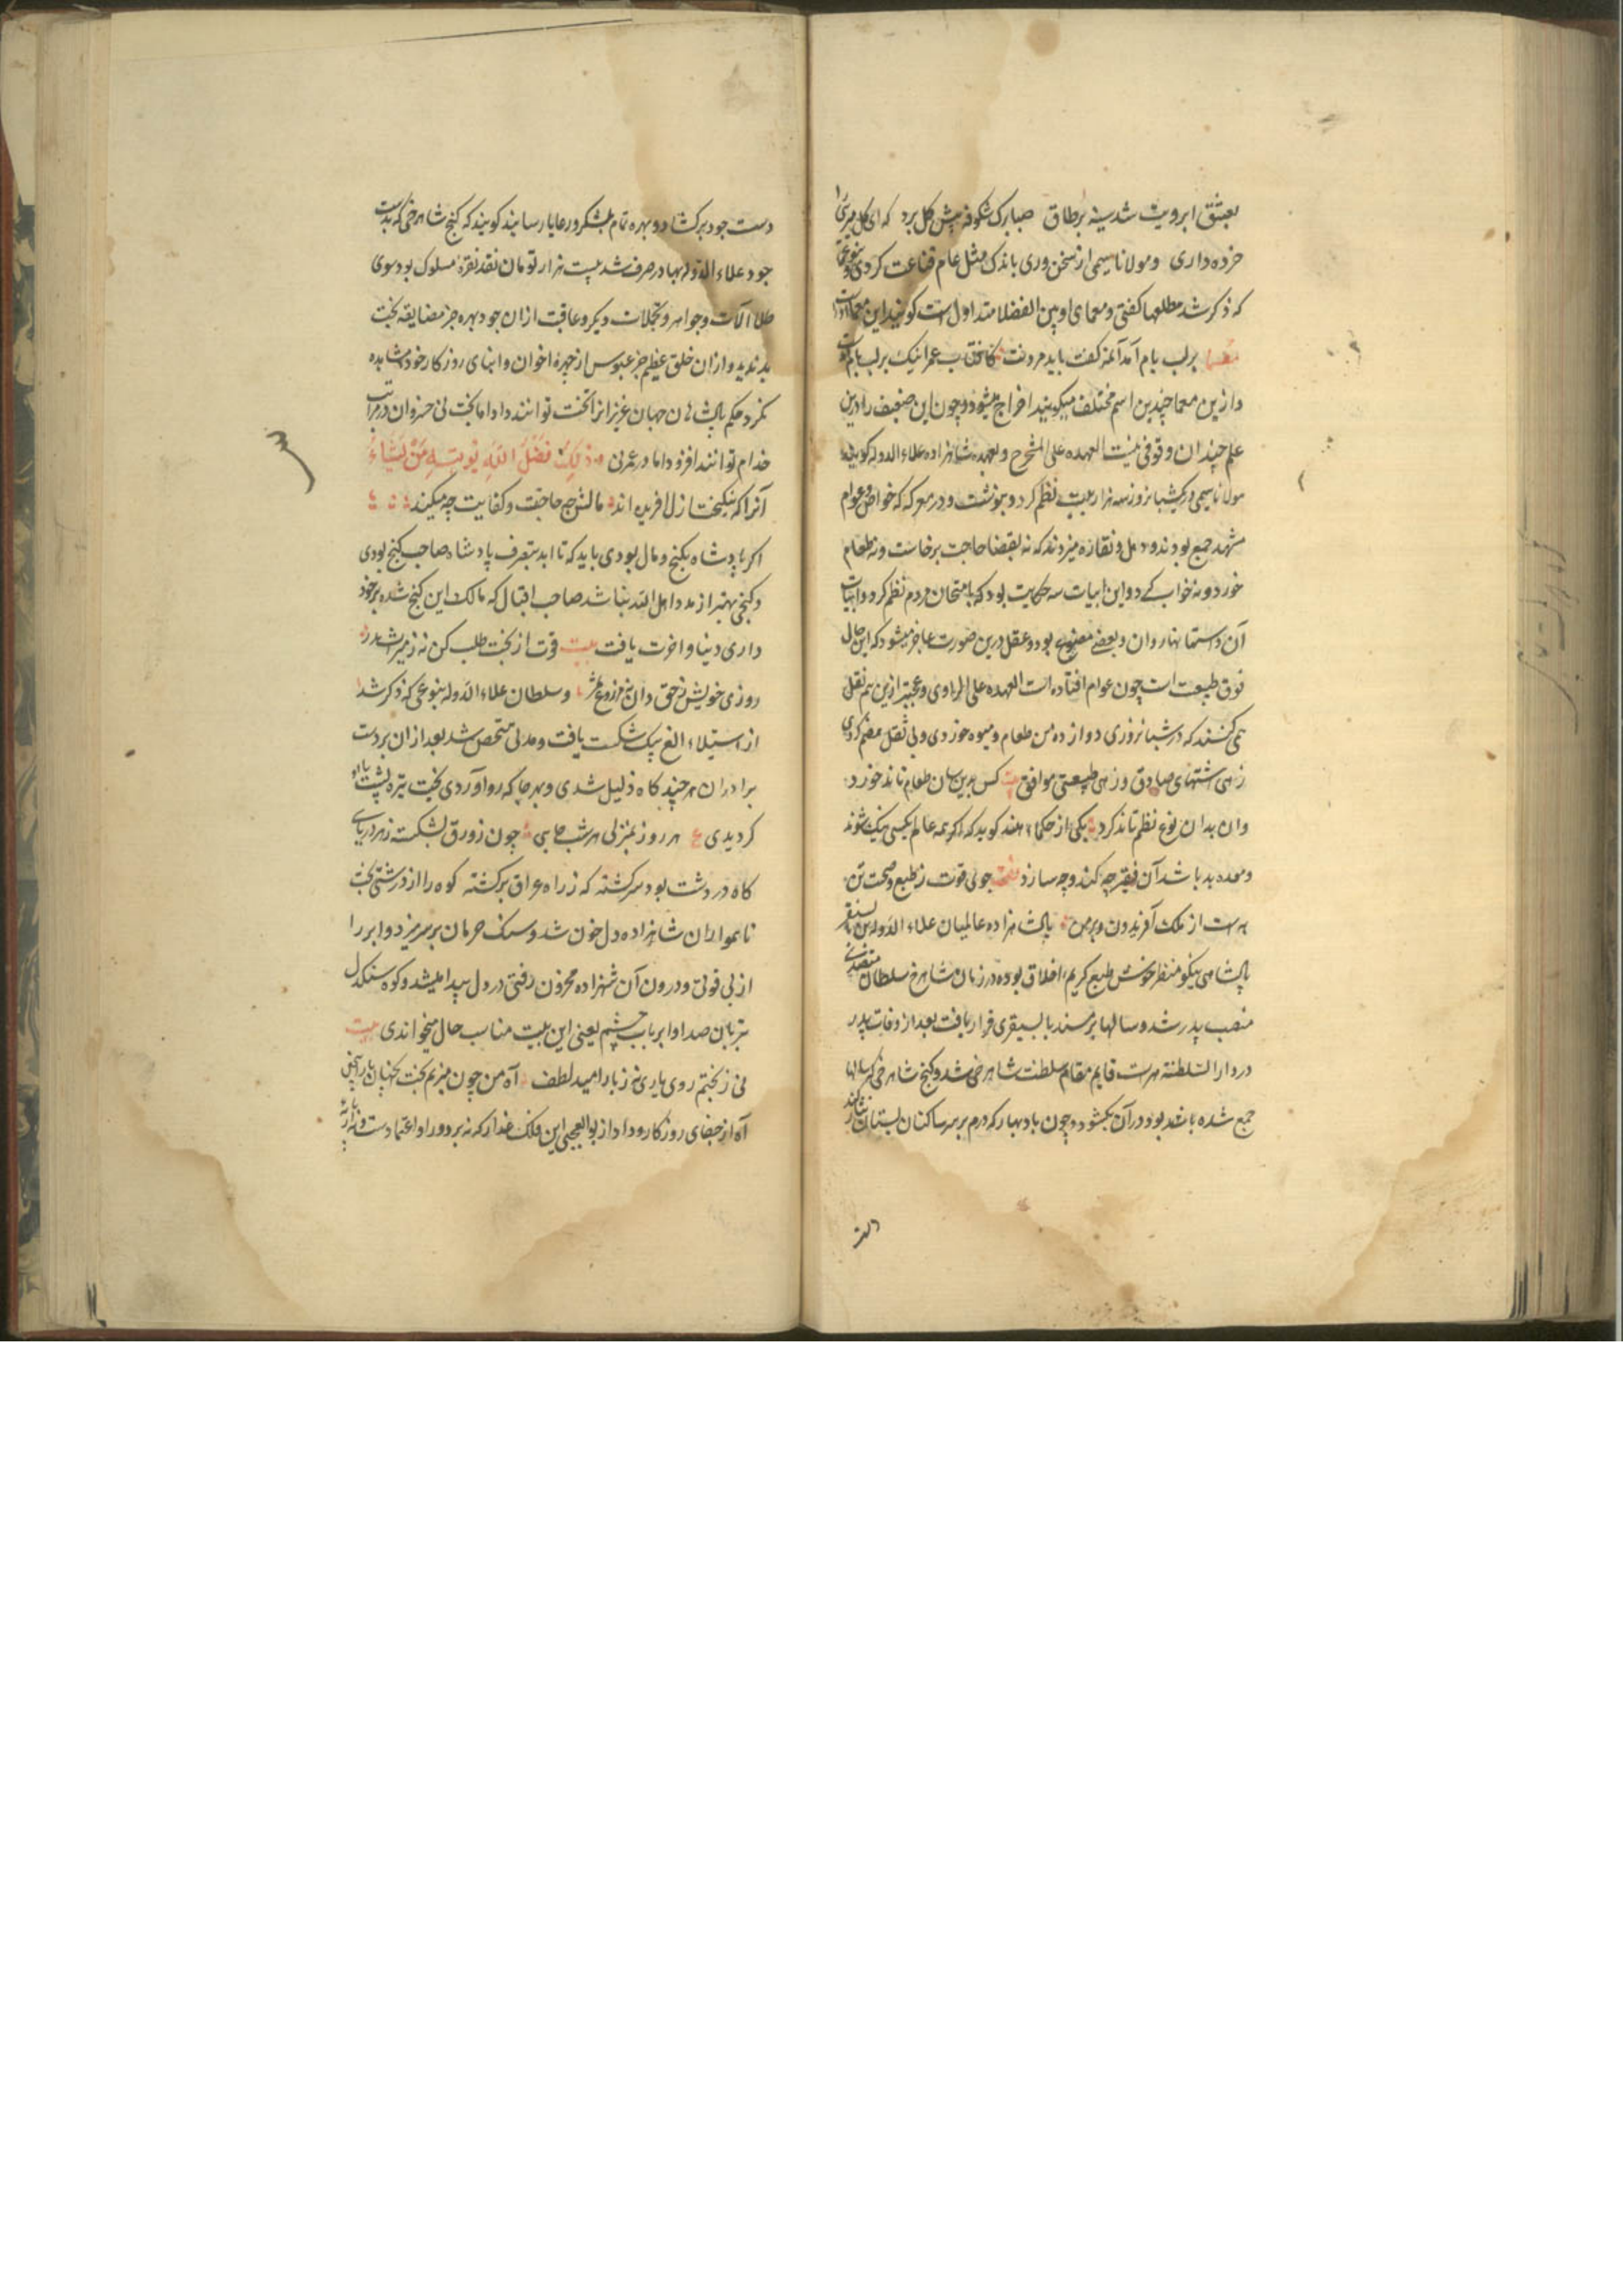 بعشق ابرویت شد سینه بر طاق صبا برک شکوفه پیش کل برد که ای کل
خرده داری و مولانا سیمی از سخن وری باندک مثل عام قناعت کردی
که ذکر شد مطلعها کفتی و معمای او بین الفضلا متداول است کویند این معما
معما بر لب بام آمد آن مه کفت باید مردنت کافتاب عمر اینک بر لب بام
و ازین معما چندین اسم مختلف میکویند اخراج میشود و چون این ضعیف را درین
علم چندان وقوفی نیست العهده علی المشرح و بعهد شاهزاده علاء الدوله کویند
مولانا سیمی در یکشبانروز سه هزار بیت نظم کرد و بنوشت و در معرکه که خواص و عوام
مشهد جمع بودند و دهل و نقاره میزدند که نه بقضا حاجت برخاست و نه طعام
خورد و نه خواب کرد و این ابیات سه حکایت بود که بامتحان مردم نظم کرد و ابیات
آن داستانها روان و بعضی مصنوع بود و عقل درین صورت عاجز میشود که این حال
فوق طبیعت است چون عوام افتاده است العهده علی الراوی و عجبتر ازین هم نقل
می کنند که در شبانروزی دوازده من طعام و میوه خوردی و بی ثقل هضم کردی
زهی اشتهای صادق و زهی طبیعتی موافق بیت کس برین سان طعام تاند خورد
وان بدان نوع نظم تاند کرد یکی از حکماء هند کوید که اکر همه عالم بکسی نیک شوند
و معده بد باشد آن فقیر چه کند و چه سازد بیت جوی قوت ز طبع و صحت تن
به است از ملک آفریدون و بهمن پادشاهزاده عالمیان علاء الدوله بن بایسنقر
پادشاهی نیکو منظر خوش طبع کریم اخلاق بوده در زمان شاهرخ سلطان متصدی
منصب پدر شد و سالها بر مسند بایسنقری قرار یافت بعد از وفات پدر
در دار السلطنه هرات قایم مقام سلطنت شاهرخی شد و کنج شاهرخی که سالها
جمع شده باشد بود در آن بکشود و چون باد بهار که درم بر سر ساکنان بستان نثار کند
دست
دست جود بر کشاد و بهره تمام بلشکر و رعایا رسانید کویند که کنج شاهرخی که بدست
جود علاء الدوله بهادر صرف شد بیست هزار تومان نقد نقره مسلوک بود سوی
طلا آلات و جواهر و تجملات دیکر و عاقبت ازان جود بهره جز مضایقه بخت
بد ندید و ازان خلق عظیم جز عبوس از چهره اخوان و ابنای روزکار خود مشاهده
نکرد حکم پادشاهان جهان عزیزانرا تخت توانند داد اما بخت نی حشر وان در مراتب
خدام توانند افزود اما در عمر نی ذلک فضل الله یوتیه من یشاء
آنرا که نیکبخت ازل افریده اند مالش چه حاجت و کفایت چه میکند
اکر پادشاه بکنج و مال بودی باید که تا ابد بتصرف پادشاه صاحب کنج بودی
و کنجی بهتر از مدد اهل الله نباشد صاحب اقبال که مالک این کنج شده برخور
داری دنیا و اخرت یافت بیت قوت از بخت طلب کن نه ز شمشیر
روزی خویش ز حق دان نه ز مزروع و سلطان علاء الدوله بنوعی که ذکر شد
از استیلاء الغ بیک شکست یافت و مدتی متحصن شد بعد از ان بر دست
برادران هر چند کاه ذلیل شدی و بهر جا که رو آوردی بخت تیره پشت باو
کردیدی ع هر روز بمنزلی هر شب جایی چون زورق بشکسته ز هر دریای
کاه در دشت بود سرکشته که ز راه عراق برکشته کوه را از درشتی بخت
ناهموار ان شاهزاده دل خون شد و سنک حرمان بر سر میزد و ابر را
از بی قوتی و درون آن شهزاده محزون رقتی در دل پیدا میشد و کوه سنکدل
بزبان صدا و ابر باب چشم یعنی این بیت مناسب حال میخواندی بیت
نی ز بختم روی یاری نه ز یار امید لطف آه من چون میزیم بخت
آه از جفای روزکار و داد از بوالعجبی این فلک غدار که نه بر دور او اعتمادست